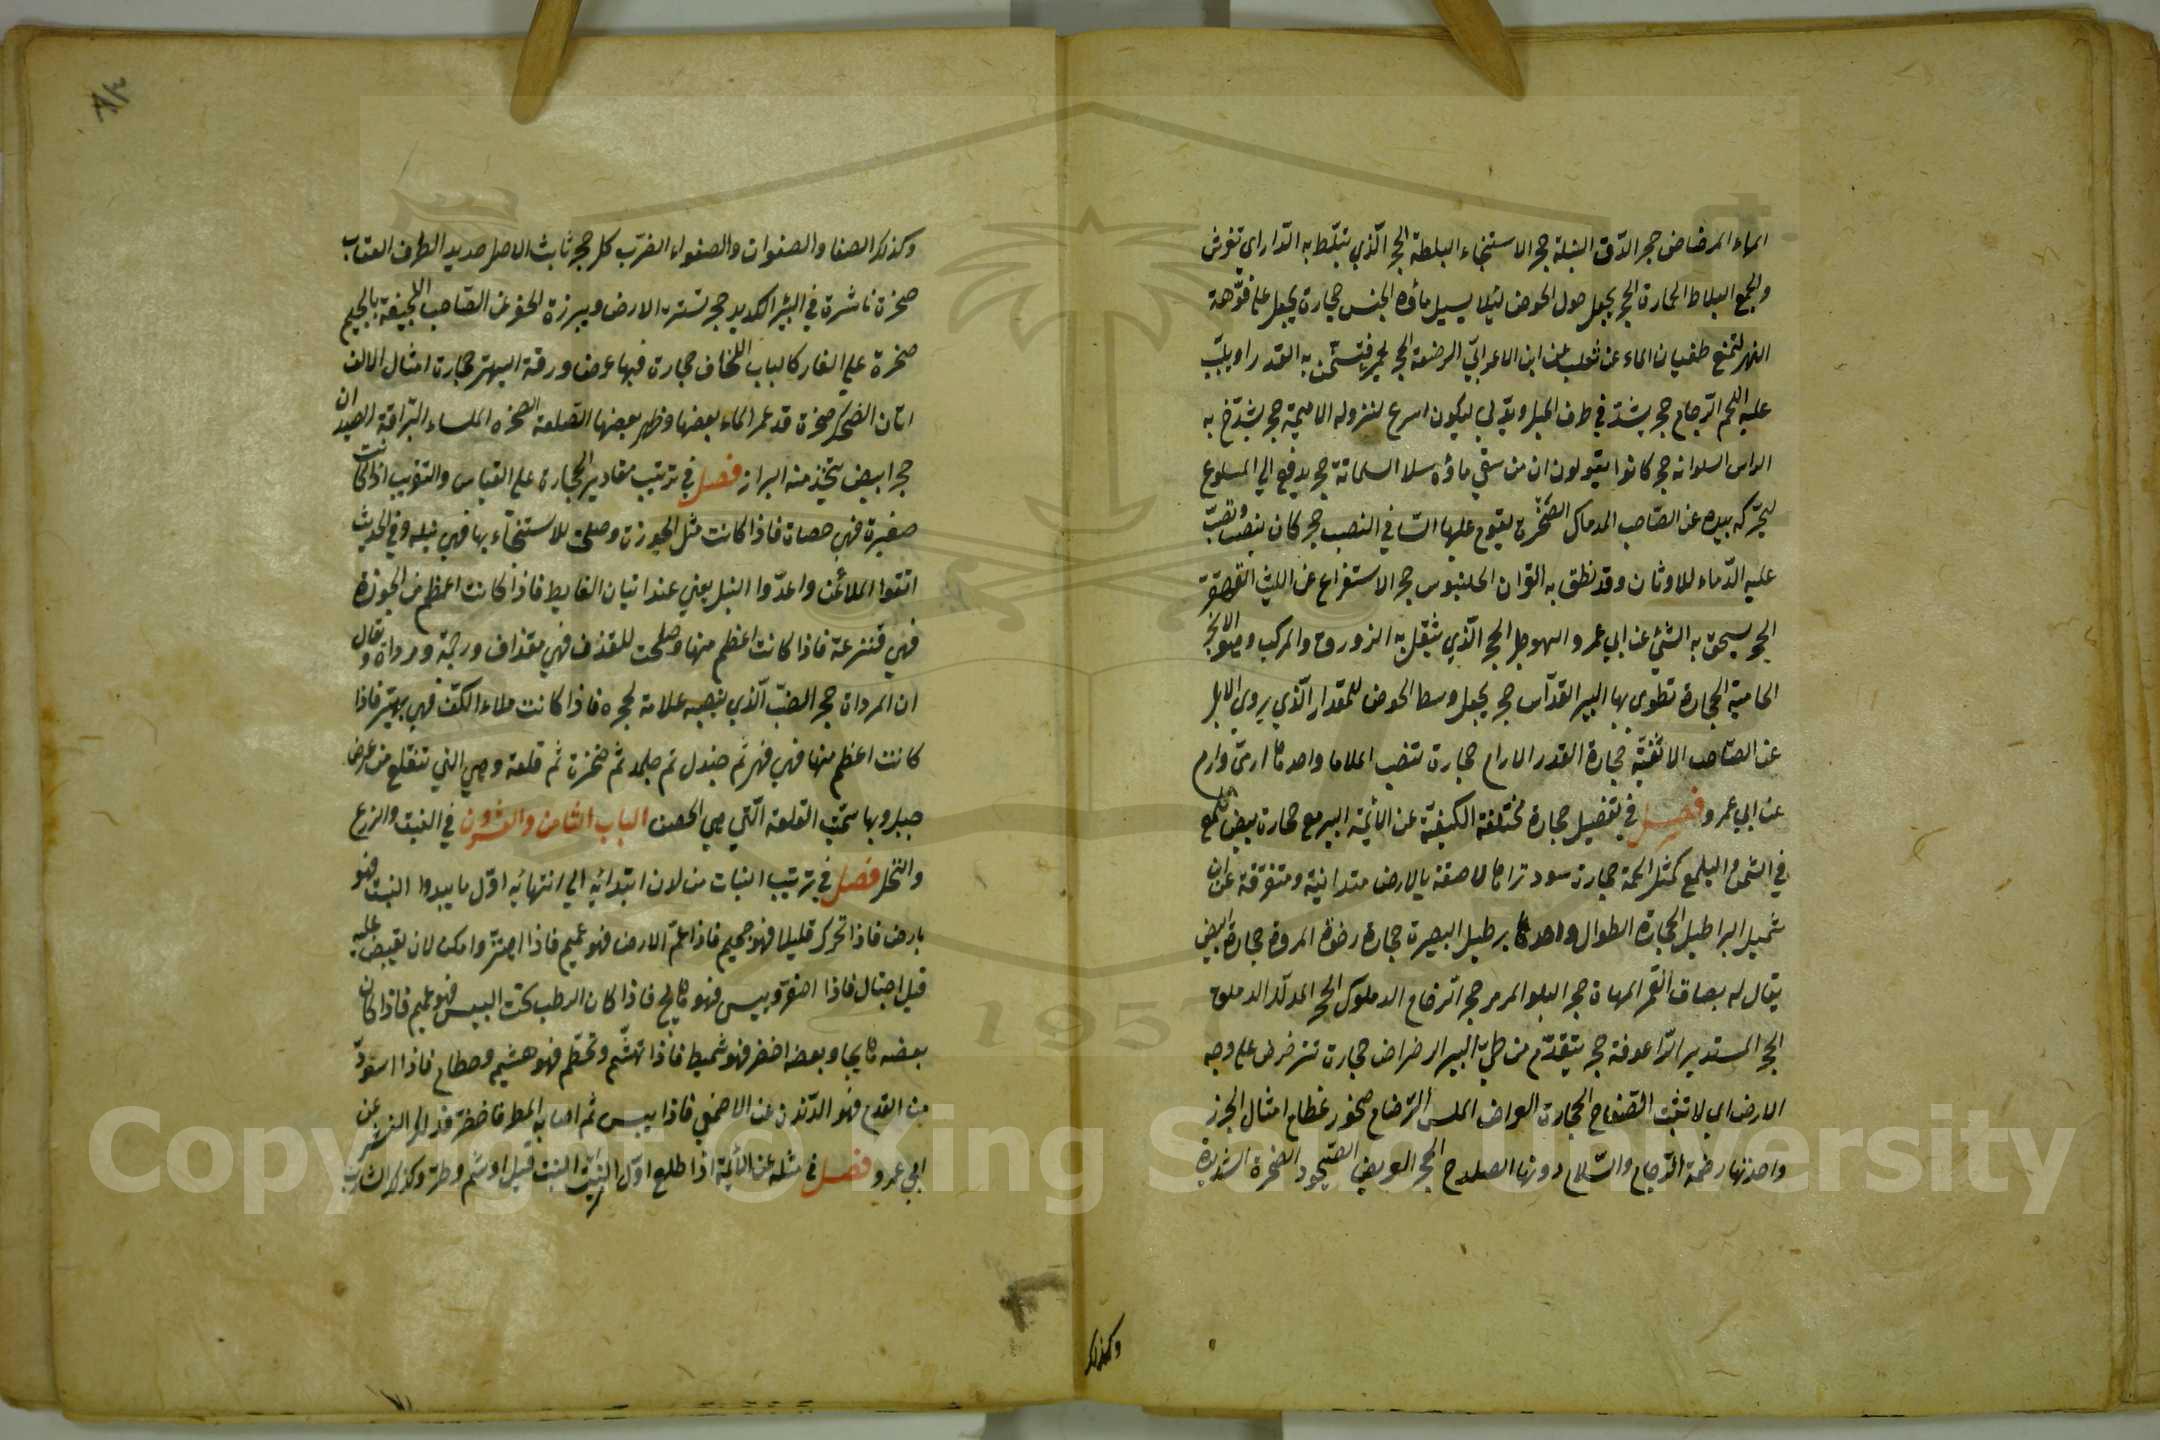 الماء المرضاض حجر الدق النبلة حجر الاستنجاء البلطة الحجر الذي تبلط به الدار اي تفرش
والجمع البلاط الحمارة الحجر يجعل حول الحوض لئلا يسيل ماؤه الحبس حجارة يجعل على فوهة
النهر لتمنع طغيان الماء عن ثعلب عن ابن الاعرابي الرضفة الحجر يحمى فتسخن به القدر او يكبب
عليه اللحم الرجام حجر يشد في طرف الحبل ويدلى ليكون اسرع لنزوله الاميمة حجر يشدخ به
الراس السلوانه حجر كانوا يقولون ان من سقي ماؤه سلا السلمانة حجر يدفع الي الملسوع
ليحركه بيده عن الصاحب المدماك الصخرة يقوم عليها الساقي النصب حجر كان ينصب وتصب
عليه الدماء للاوثان وقد نطق به القران الحلنبوس حجر الاستفراغ عن الليث القهقر
الحجر يسحق به الشئ عن ابي عمرو الهوجل الحجر الذي يثقل به الزورق والمركب وهو الانجر
الحامية الحجارة تطوى بها البير القداس حجر يجعل وسط الحوض للمقدار الذي يروي الابل
عن الصاحب الاثفية حجارة القدر الارام حجارة تنصب اعلاما واحدها ارمى وارم
عن ابي عمرو فصل في تفصيل حجارة مختلفة الكيفية عن الائمة اليرمع حجارة بيض تلمع
في الشمس واليلمع كمثل الحمة حجارة سود تراها لاصقة بالارض متدانية ومتفرقة عن ابن
شميل البراطيل الحجارة الطوال واحدها برطيل البصرة حجارة رخوة المروة حجارة البيض
يقال له بصاق القمر المهاة حجر البلور المرمر حجر الرخام الدملوك الحجر المدلك الدملق
الحجر المستدير الراعوفة حجر يتقدم من طي البير الرضراض حجارة تترضرض على وجه
الارض اي لا تثبت الصفاح الحجارة العراض الملس الرضام صخور عظام امثال الجزر
واحدتها رضمة الرجام والسلام دونها الصلدح الحجر العريض الصيخود الصخرة الشديدة
وكذلك
وكذلك الصفا والصفوان والصفواء الضرب كل حجر ثابت الاصل حديد الطرف العقاب
صخرة ناشزة في البئر الكديد حجر تستره الارض ويبرزه الحفر عن الصاحب اللجيفة بالجيم
صخرة على الغار كالباب اللخاف حجارة فيها عرض ورقة اليهير حجارة امثال الاكف
اتان الضحل صخرة قد غمر الماء بعضها وظهر بعضها الصلعة الصخره الملساء البراقة الصيدان
حجر ابيض يتخذ منه البرام فصل في ترتيب مقادير الحجارة على القياس والتقريب اذا كانت
صغيرة فهي حصاة فاذا كانت مثل الجوزة وصلحت للاستنجاء بها فهي نبله وفي الحديث
اتقوا الملاعن واعدوا النبل يعني عند اتيان الغايط فاذا كانت اعظم من الجوزة
فهي قنزعة فاذا كانت اعظم منها وصلحت للقذف فهي مقذاف ورجمة ومرداة ويقال
ان المرداة حجر الضب الذي ينصبه علامة لجحره فاذا كانت ملاء الكف فهي يهير فاذا
كانت اعظم منها فهي فهر ثم جندل ثم جلمد ثم صخرة ثم قلعة وهي التي تنقلع من عرض
جبل وبها سميت القلعة التي هي الحصن الباب الثامن والعشرون في النبت والزرع
والنخل فصل في ترتيب النبات من لدن ابتدائه الي انتهائه اول ما يبدوا النبت فهو
بارض فاذا تحرك قليلا فهو جميم فاذا عم الارض فهو عميم فاذا اهتز وامكن لان يقبض عليه
قيل اجثال فاذا اصفر ويبس فهو هايج فاذا كان الرطب تحت اليبيس فهو غميم فاذا كان
بعضه هايجا وبعضه اخضر فهو شميط فاذا تهشم وتحطم فهو هشيم وحطام فاذا اسود
من القدم فهو الدندن عن الاصمعي فاذا يبس ثم اصابه المطر فاخضر فذلك النشر عن
ابي عمرو فصل في مثله عن الائمة اذا طلع اول النبت قيل اوشم وطر وكذلك الشارب